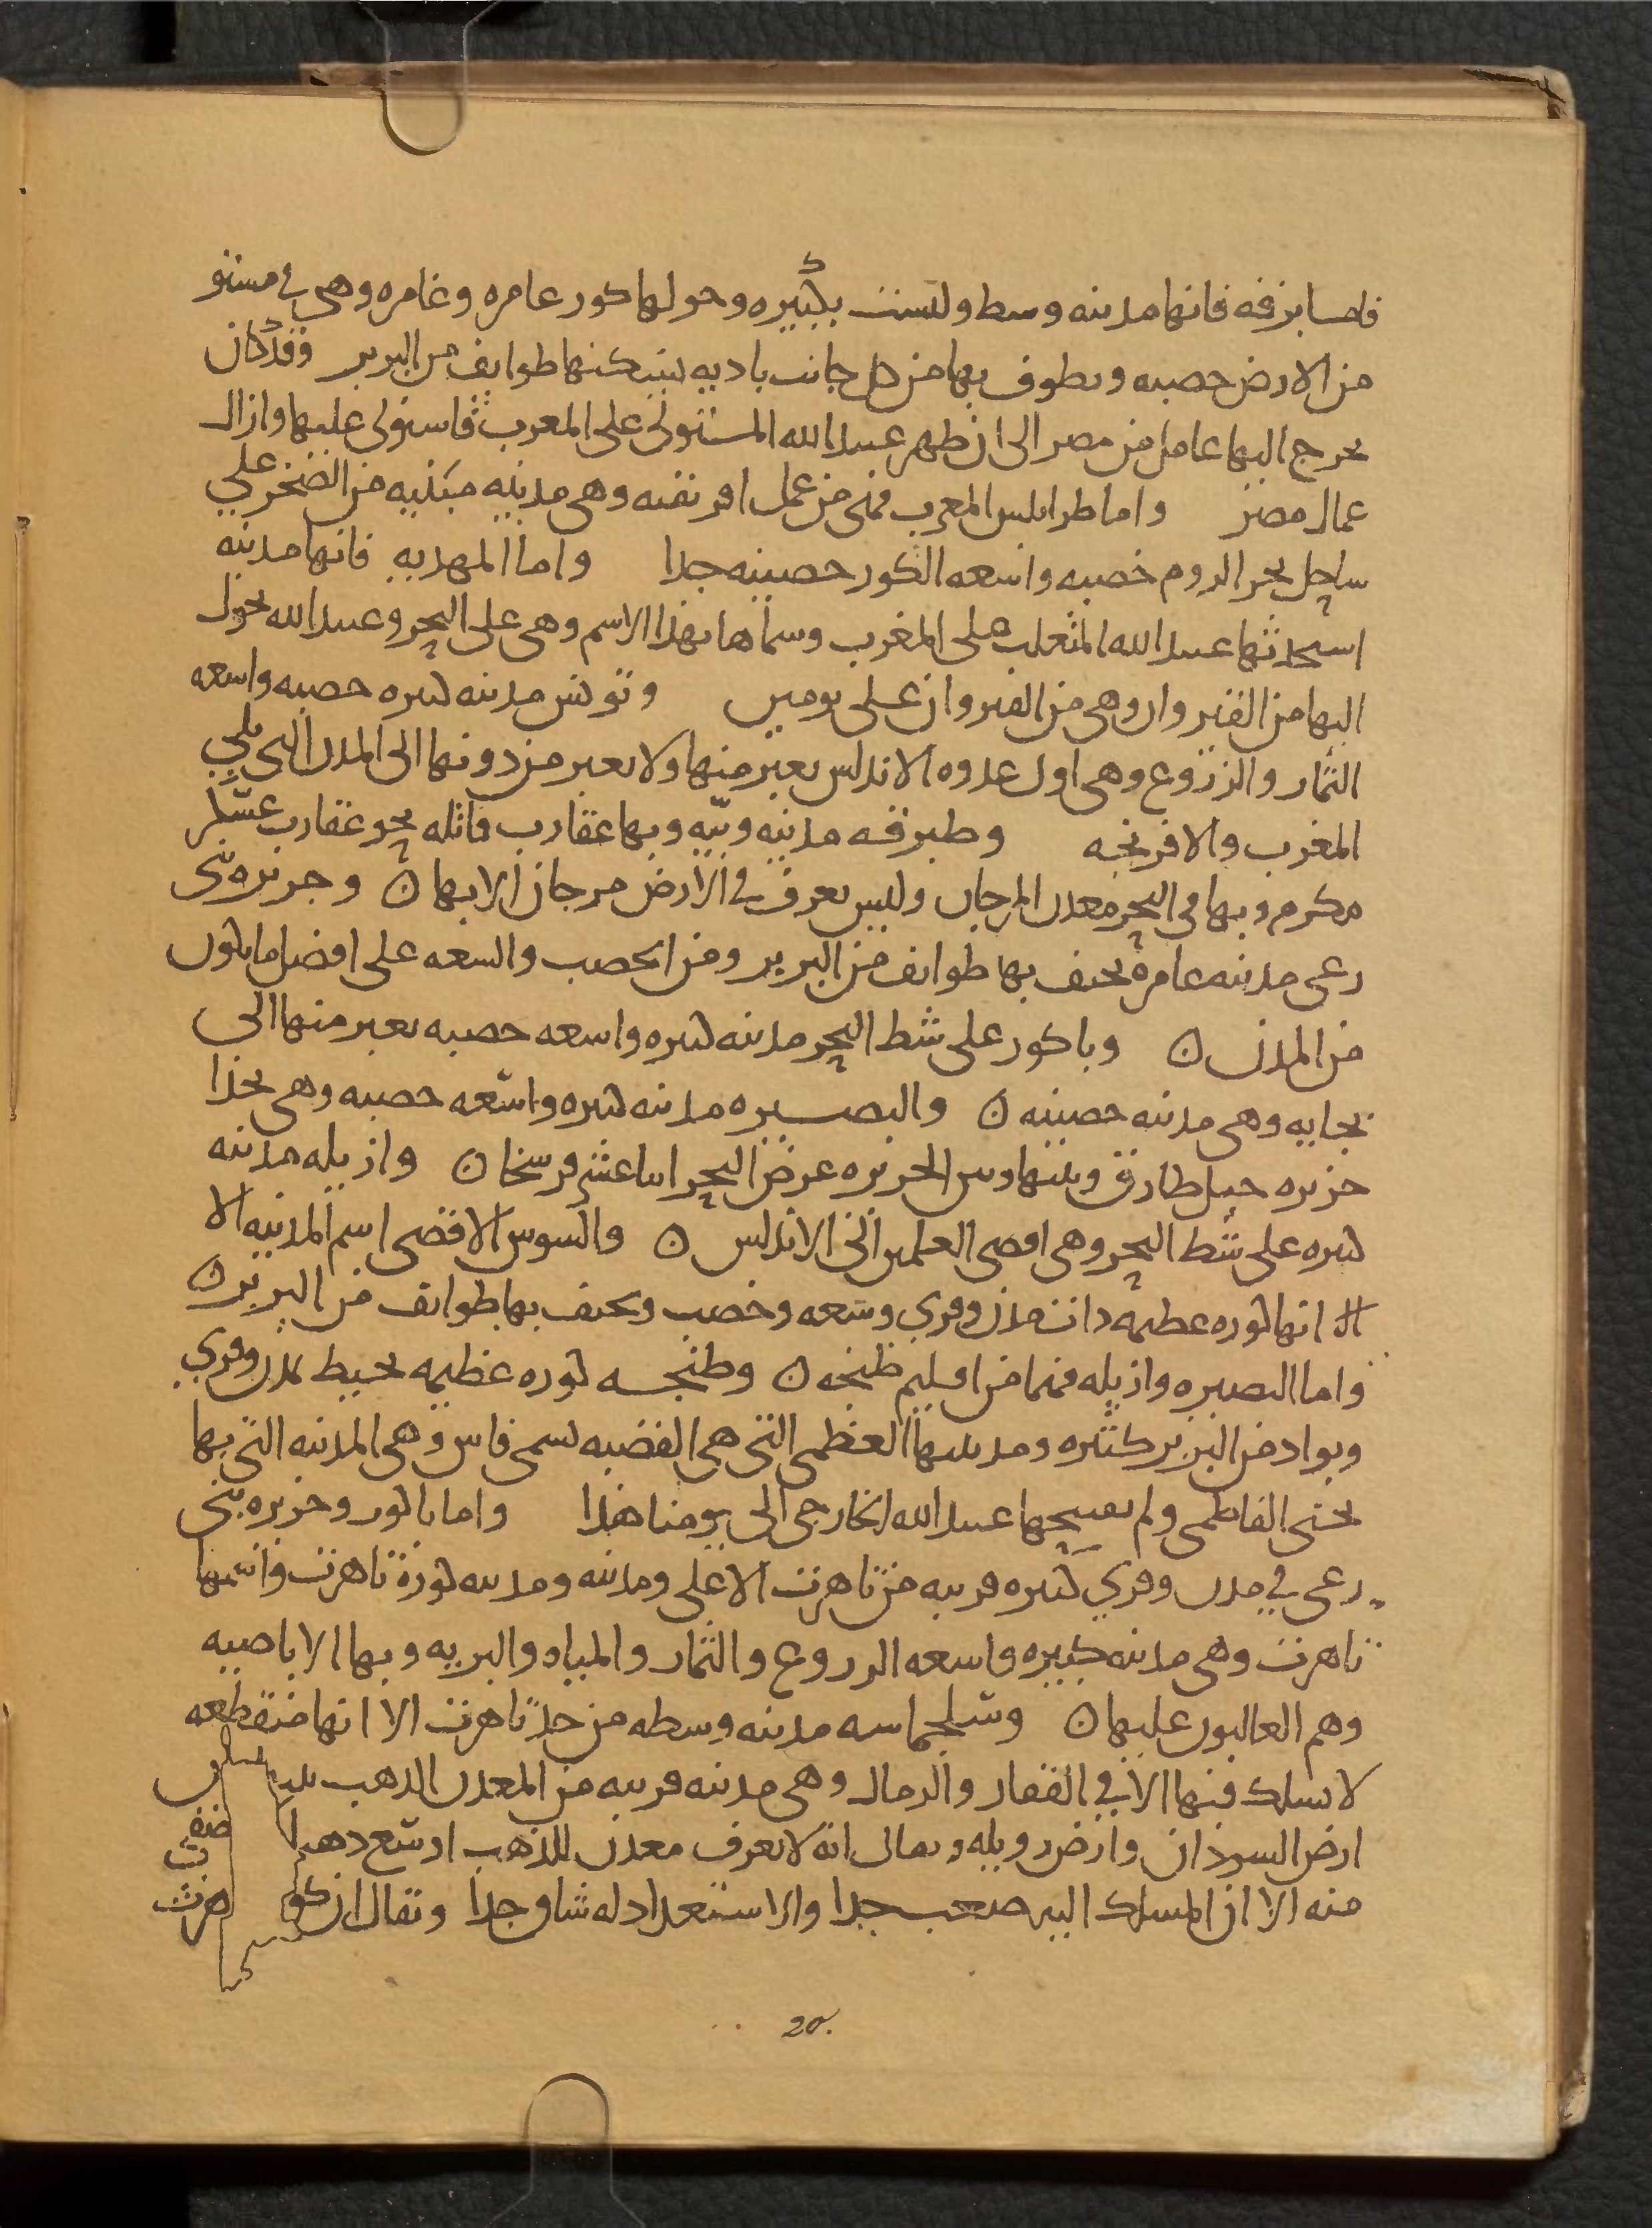 فاما برقه فانها مدينه وسط وليست بكبيره وحولها كور عامره وغامره وهى فى مستو
من الارض خصبه ويطوف بها من كل جانب باديه يسكنها طوايف من البربر وقد كان
يخرج اليها عامل من مصر الى ان ظهر عبيد الله المستولى على المغرب فاستولى عليها وازال
عمال مصر واما طرابلس المغرب فهى من عمل افريقيه وهى مدينه مبنيه من الصخر على
ساحل بحر الروم خصبه واسعه الكور حصينه جدا واما المهديه فانها مدينه
استحدثها عبيد الله المتغلب على المغرب وسماها بهذا الاسم وهى على البحر وعبيد الله تحول
اليها من القيروان وهى من القيروان على يومين وتونس مدينه كبيره خصبه واسعه
الثمار والزروع وهى اول عدوه الاندلس يعبر منها ولا يعبر من دونها الى المدن التى تلي
المغرب والافرنجه وطبرقه مدينه وبيه وبها عقارب قاتله نحو عقارب عسكر
مكرم وبها فى البحر معدن المرجان وليس يعرف فى الارض مرجان الا بها ن وجزيره بنى
رعى مدينه عامره يحتف بها طوايف من البربر ومن الخصب والسعه على افضل ما يكون
من المدن ن وباكور على شط البحر مدينه كبيره واسعه خصبه يعبر منها الى
بجايه وهى مدينه حصينه ن والبصيره مدينه كبيره واسعه خصبه وهى بحذا
جزيره جبل طارق وبينها وبين الجزيره عرض البحر اثنا عشر فرسخا ن وازيله مدينه
كبيره على شط البحر وهى اقصى العلمين الى الاندلس ن والسوس الاقصى اسم المدينه الا
الا انها كوره عظيمه ذات مدن وقرى وسعه وخصب ويحتف بها طوايف من البربر ن
واما البصيره وازيله فهما من اقليم طنجه ن وطنجه كوره عظيمه تحيط بمدن وقرى
وبواد من البربر كثيره ومدينتها العظمى التى هى القصبه تسمى فاس وهى المدينه التى بها
يحيى الفاطمى ولم يفتحها عبيد الله الخارجى الى يومنا هذا واما باكور وجزيره بنى
رعى فى مدن وقرى كثيره قريبه من تاهرت الاعلى ومدينه ومدينه كوره تاهرت واسمها
تاهرت وهى مدينه كبيره واسعه الزروع والثمار والمياه والبريه وبها الاباضيه
وهم الغالبون عليها ن وسلجماسه مدينه وسطه من حد تاهرت الا انها منقطعه
لا يسلك فيها الا فى القفار والرمال وهى مدينه قريبه من المعدن الذهب
ارض السودان وارض زويله ويقال انه لا يعرف معدن للذهب اوسع ذهبا
منه الا ان المسلك اليه صعب جدا والاستعداد له شاق جدا ويقال ان كو
20.